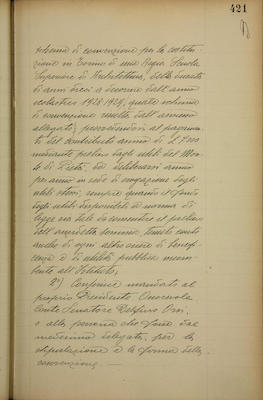 421
schema di convenzione per la costitu-
zione in Torino di una Regia Scuola
Superiore di Architettura, della durata
di anni dieci a decorrere dall'anno
scolastico 1928-1929, quale schema
di convenzione resulta dall'annesso
allegato; provvedendosi al pagamen-
to del contributo annuo di L.
mediante prelievo dagli utili del Mon-
te di Pietà, da deliberarsi anno
per anno in sede di erogazione degli
utili stessi, sempre quando il fondo
degli utili disponibili a norma di
legge sia tale da consentire il prelievo
dell'anzidetta somma, tenuto conto
anche di ogni altro onere di benefi-
cenza o di utilità pubblica incom-
bente all'Istituto;
2°) Conferisce mandato al
proprio Presidente Onorevole
Conte Senatore Delfino Orsi,
o alla persona che fosse dal
medesimo delegata, per la
stipulazione e la firma della
convenzione. —